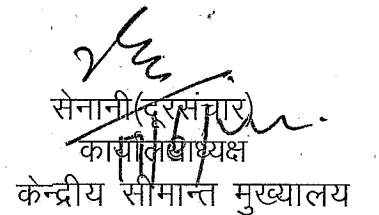 सेनानी(दूरसंचार)
कार्यालयाध्यक्ष
केन्द्रीय सीमान्त मुख्यालय